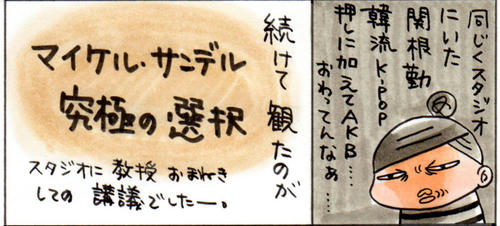 同じくスタジオ
にいた
関根勤
韓流K-POP
押しに加えてAKB……
おわってんなぁ……
続けて観たのが
マイケル・サンデル
究極の選択
スタジオに教授おまねき
しての講義でしたー。